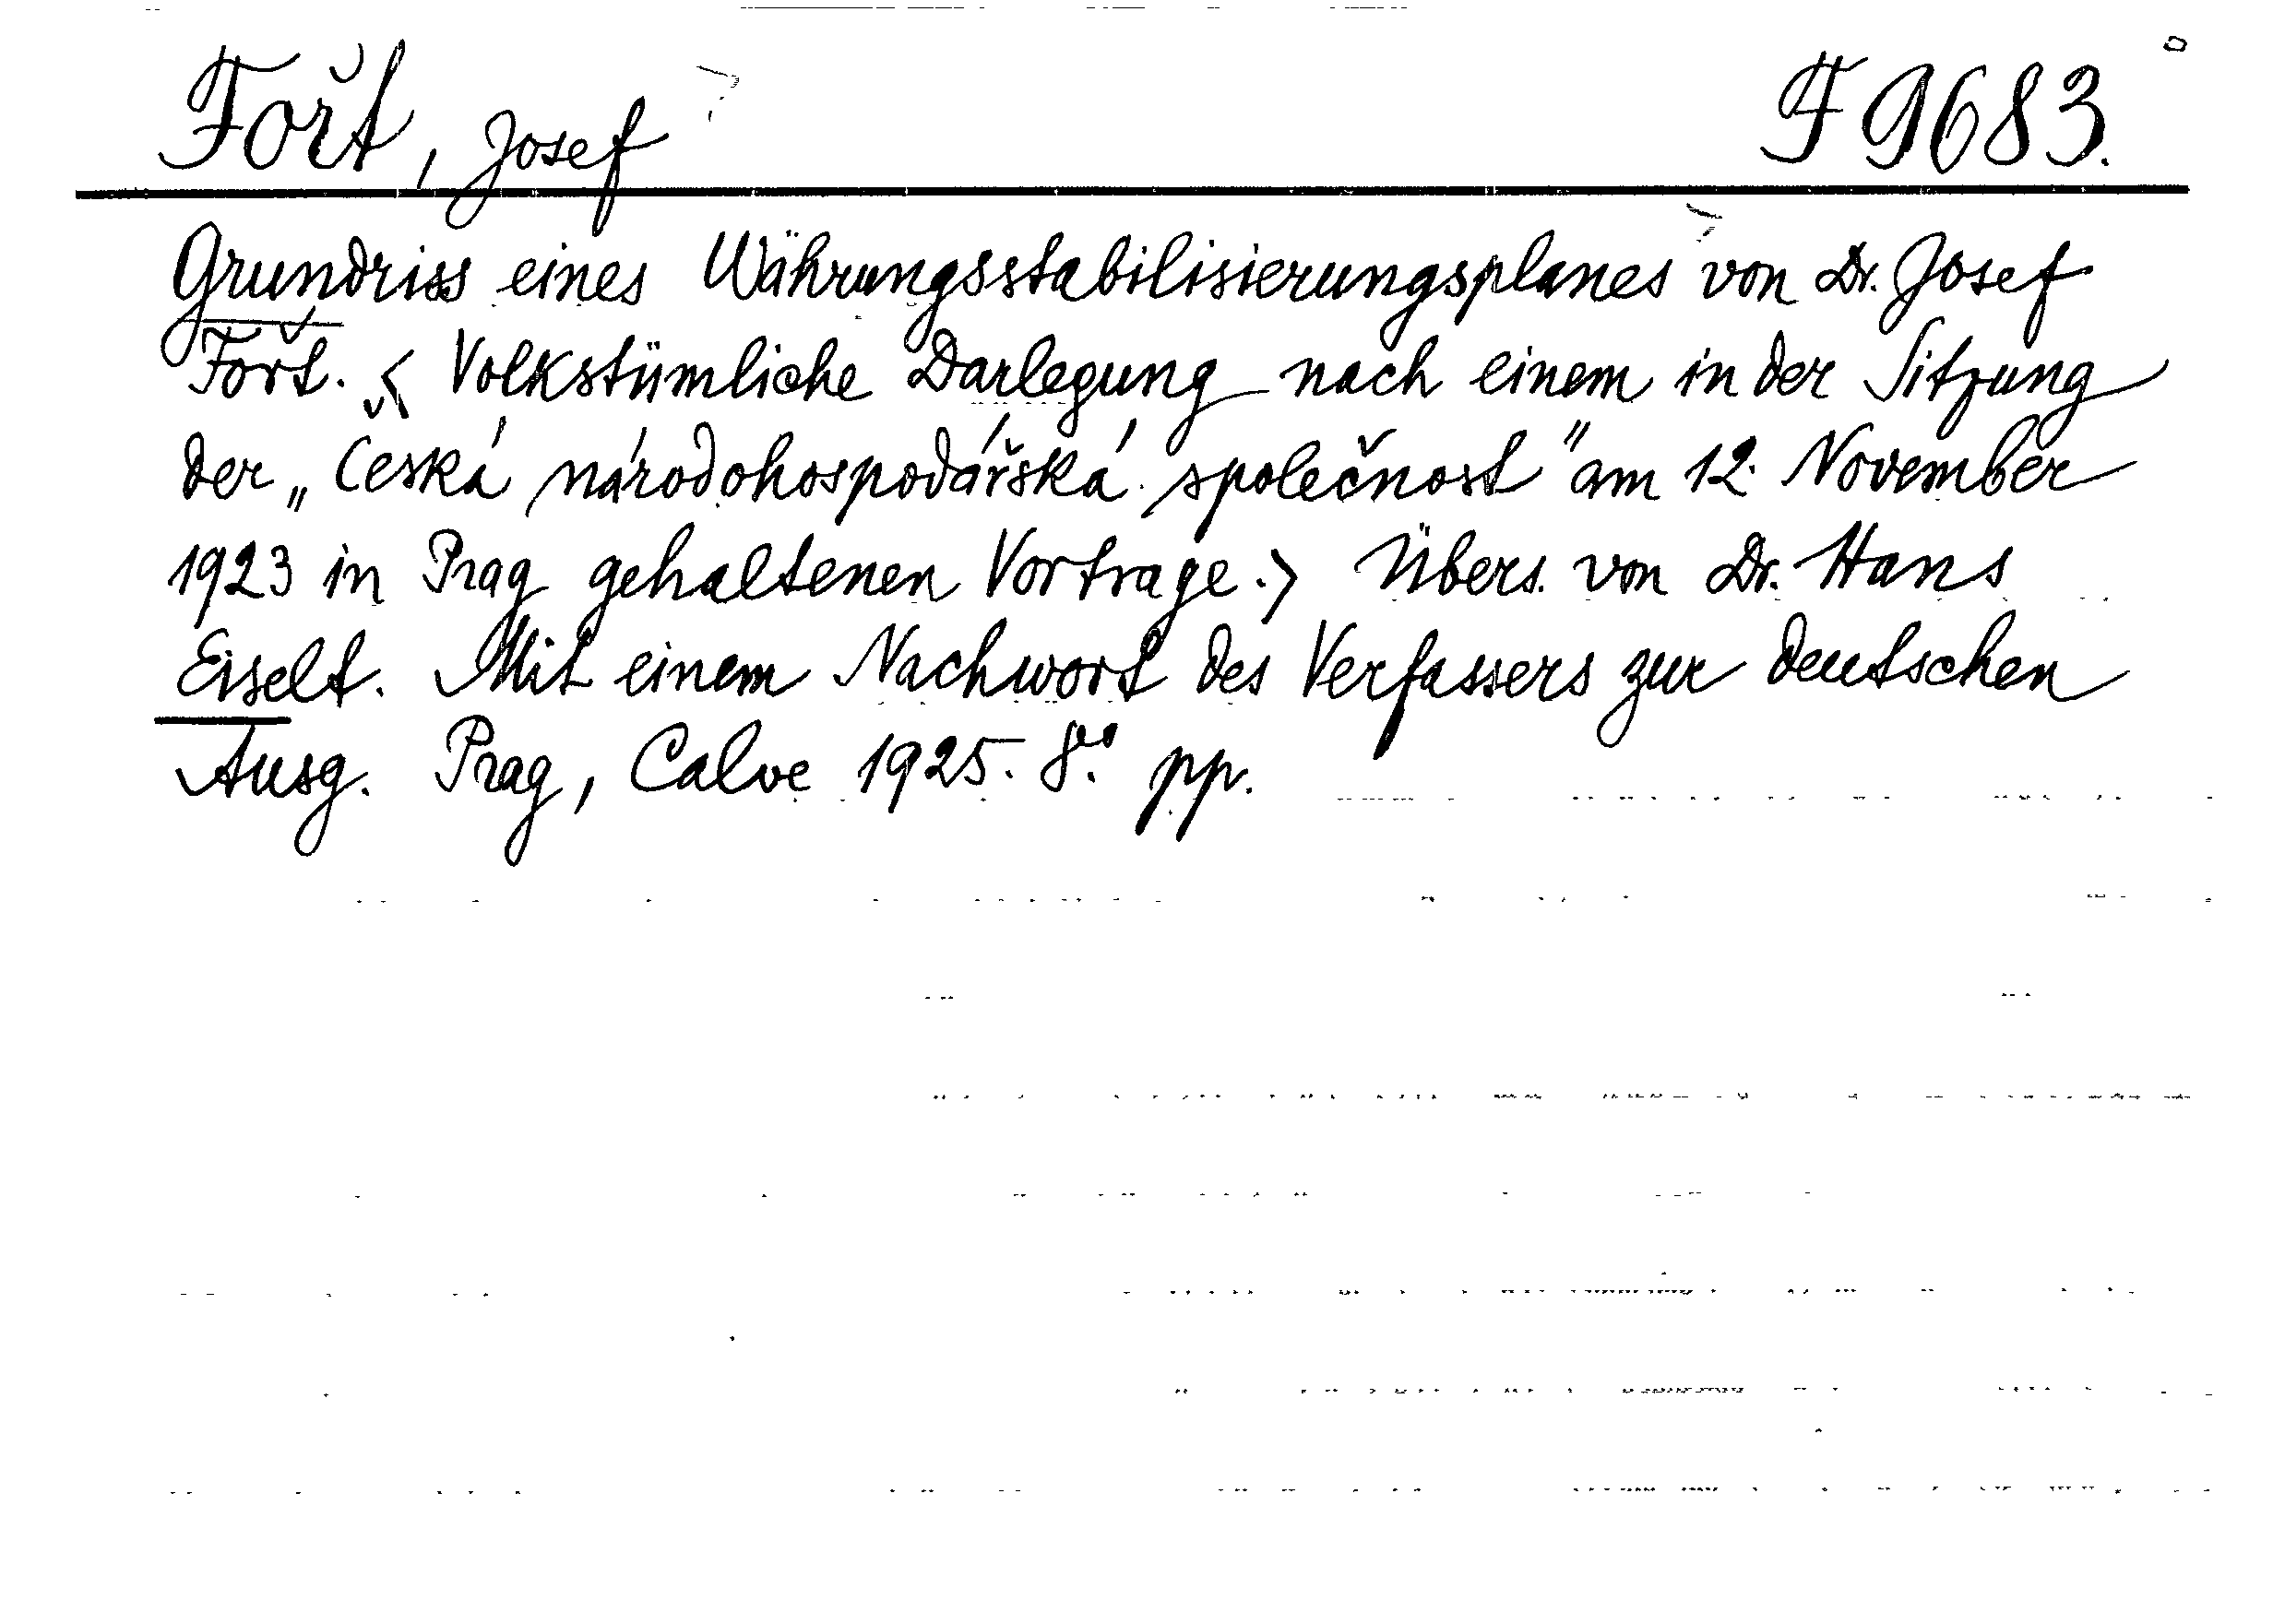 Fořt, Josef F 9683.
Grundriss eines Währungsstabilisierungsplanes von Dr. Josef
Fořt. < Volkstümliche Darlegung nach einem in der Sitzung
der „Česká národohospodářská společnost" am 12. November
1923 in Prag gehaltenen Vortrage.> Übers. von Dr. Hans
Eiselt. Mit einem Nachwort des Verfassers zur deutschen
Ausg. Prag, Calve 1925. 8º pp.